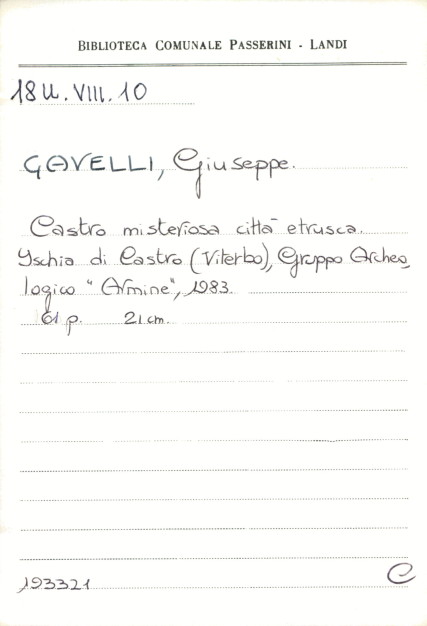 BIBLIOTECA COMUNALE PASSERINI - LANDI
18 U. VIII. 10
GAVELLI, Giuseppe.
Castro misteriosa città etrusca.
Yschia di Castro (Viterbo), Gruppo Archeo
logico "Armine", 1983.
61 p. 21 cm.
193321
C